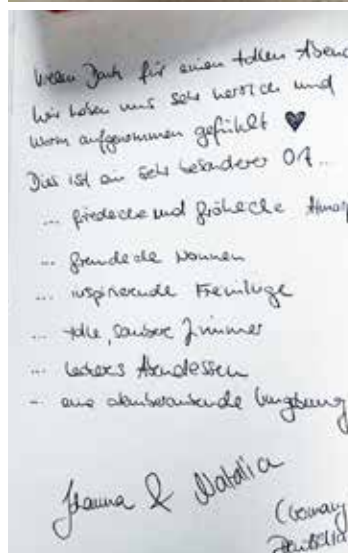 Vielen Dank für einen tollen Abend
Wir haben uns sehr herzlich und
warm aufgenommen gefühlt ♥
Dies ist ein sehr besonderer Ort...
... friedliche und fröhliche Atmosp
... freundliche Nonnen
... inspirierende Fremdluge
... tolle, saubere Zimmer
... leckeres Abendessen
... eine atemberaubende Umgebung
& Natalia
(Germany
Deutschla